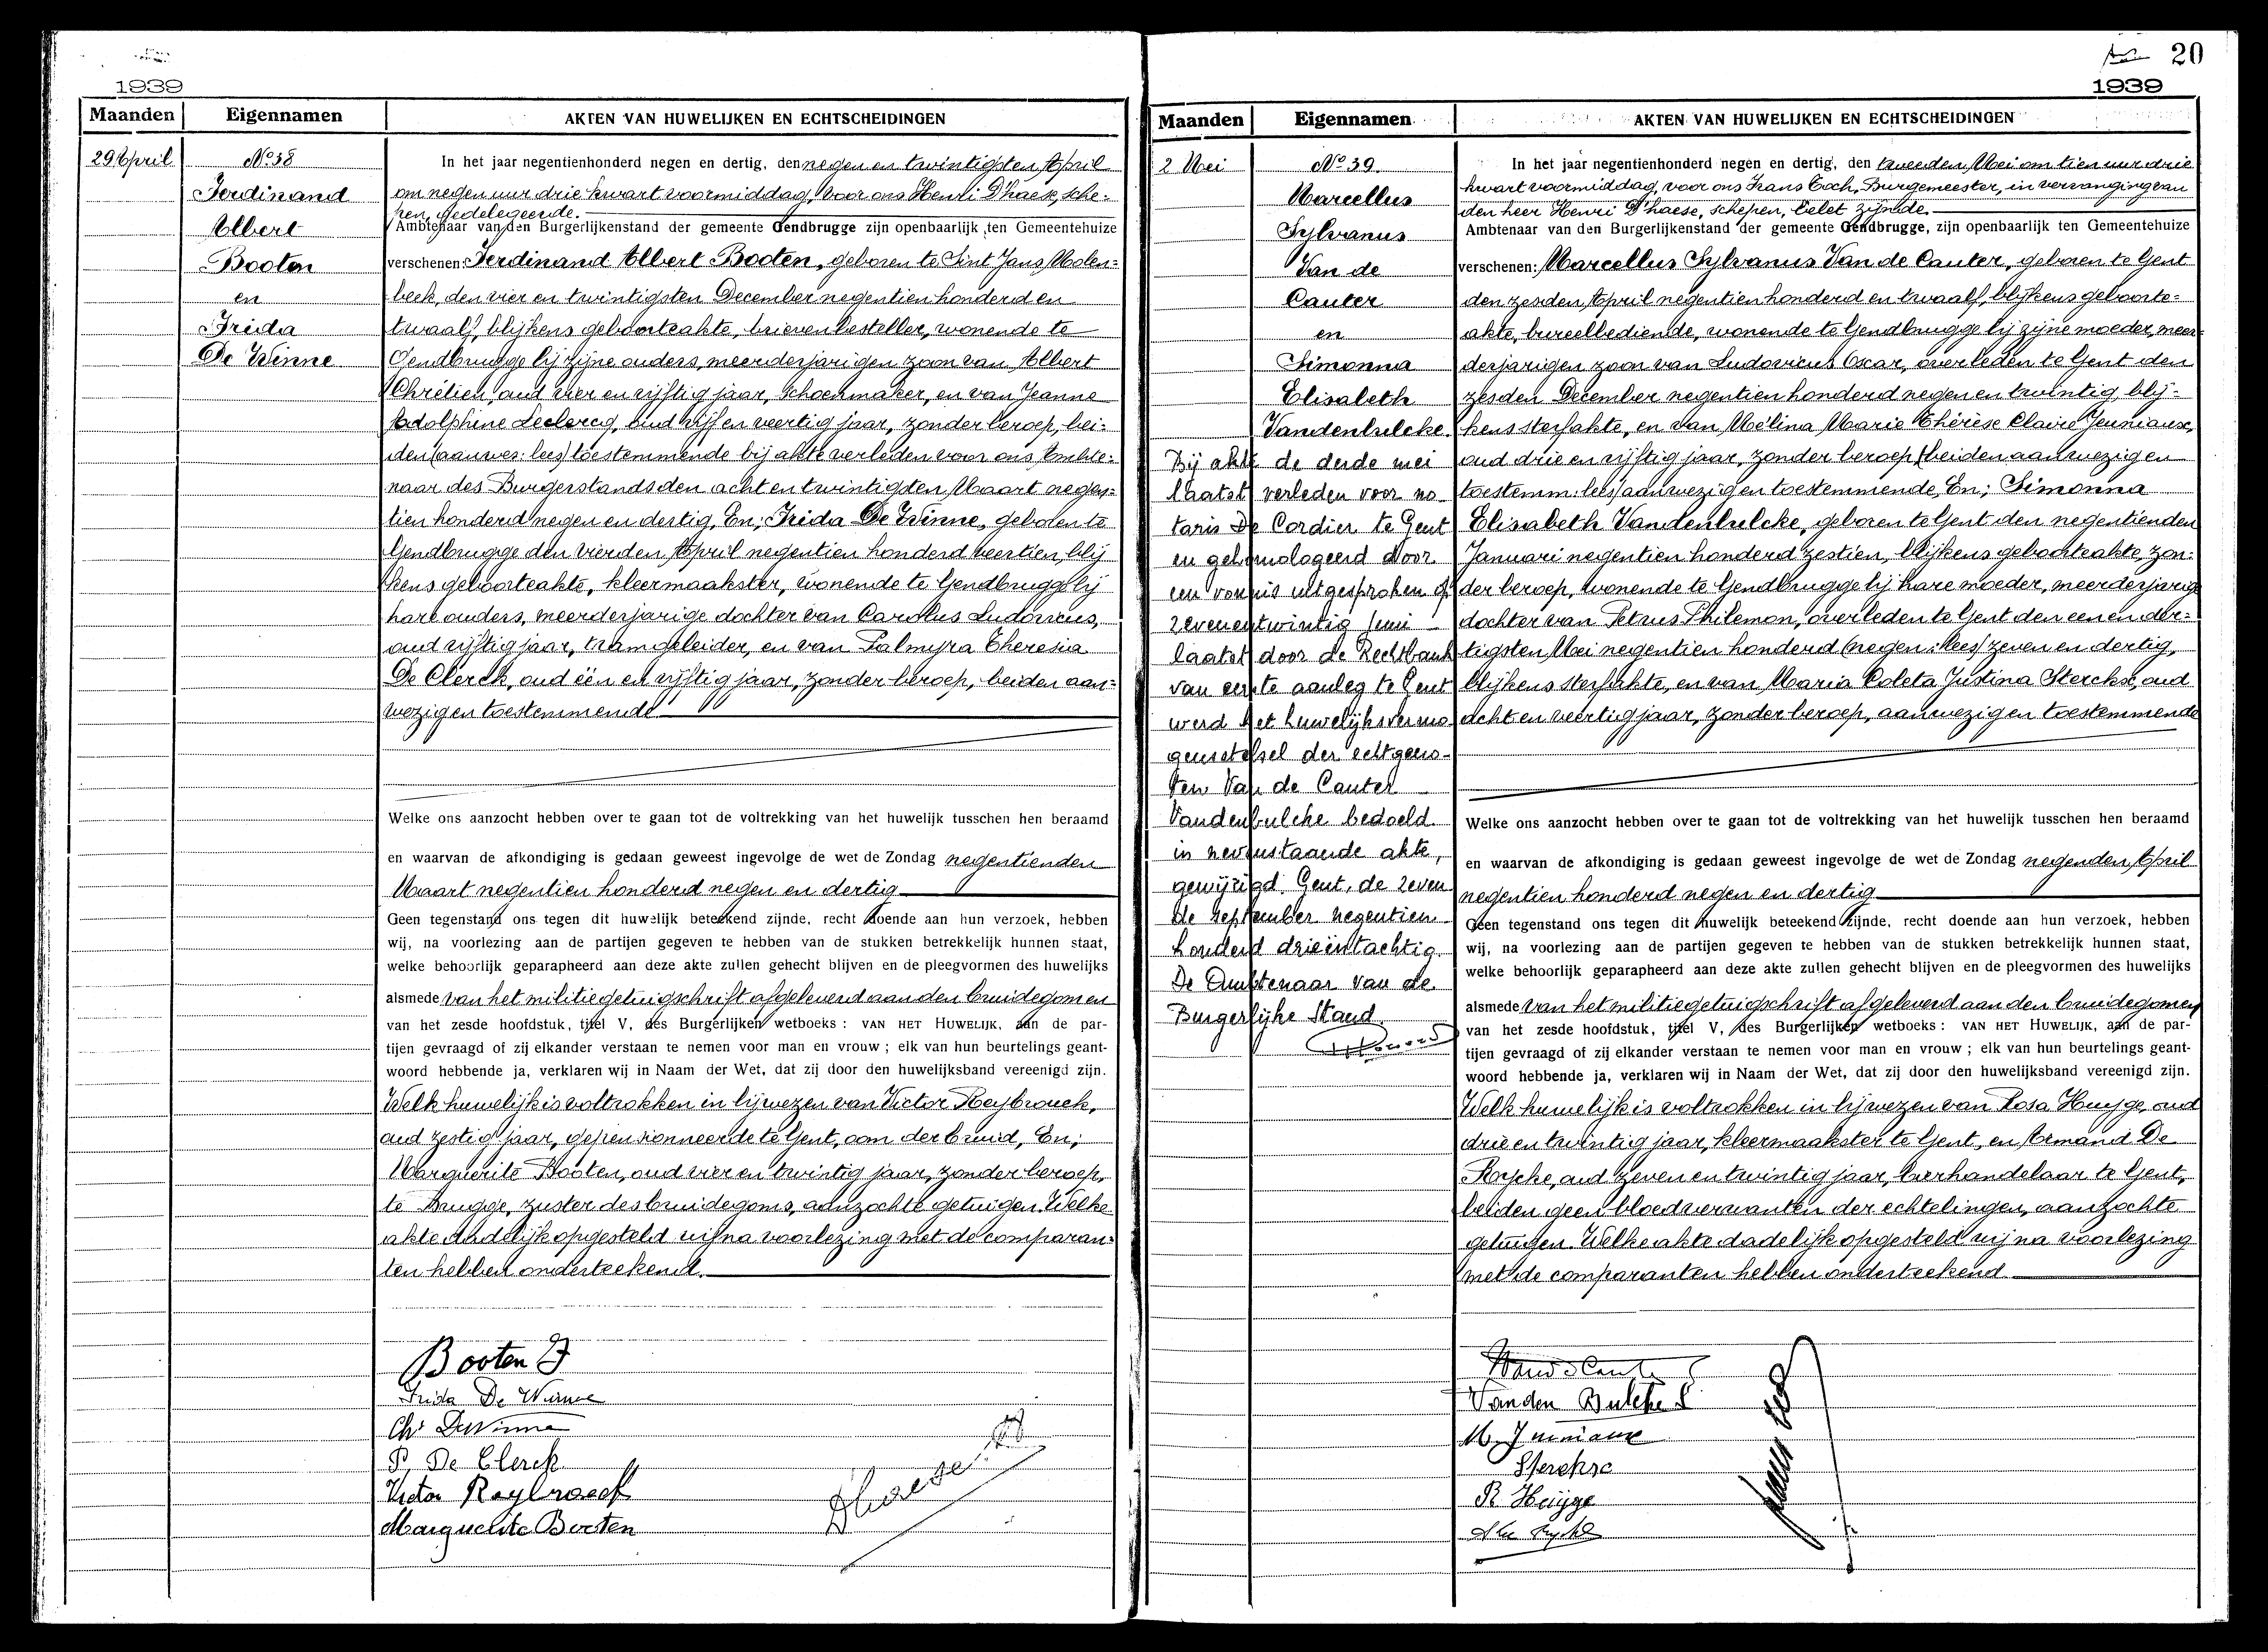 1939
Maanden Eigennamen AKTEN VAN HUWELIJKEN EN ECHTSCHEIDINGEN
29 April
No 38
Ferdinand
Albert
Booten
en
Frida
De Winne
In het jaar negentienhonderd negen en dertig, den negen en twintigsten April
om negen uur drie kwart voormiddag, voor ons Henri D'haese, sche-
pen, gedelegeerde.
Ambtenaar van den Burgerlijkenstand der gemeente Gendbrugge zijn openbaarlijk ten Gemeentehuize
verschenen: Ferdinand Albert Booten, geboren te Sint Jans Molen-
beek, den vier en twintigsten December negentien honderd en
twaalf, blijkens geboorteakte, brievenbesteller, wonende te
Gendbrugge bij zijne ouders, meerderjarigen zoon van Albert
Chrétien, oud vier en vijftig jaar, schoenmaker, en van Jeanne
Adolphine Leclercq, oud vijf en veertig jaar, zonder beroep, bei-
den (aanwez: lees) toestemmende bij akte verleden voor ons, Ambte-
naar des Burgerstands den acht en twintigsten Maart negen-
tien honderd negen en dertig, En; Frida De Winne, geboren te
Gendbrugge den vierden April negentien honderd veertien, blij
kens geboorteakte, kleermaakster, wonende te Gendbrugge bij
hare ouders, meerderjarige dochter van Carolus Ludovicus,
oud vijftig jaar, tramgeleider, en van Palmyra Theresia
De Clerck, oud één en vijftig jaar, zonder beroep, beiden aan-
wezig en toestemmende
Welke ons aanzocht hebben over te gaan tot de voltrekking van het huwelijk tusschen hen beraamd
en waarvan de afkondiging is gedaan geweest ingevolge de wet de Zondag negentienden
Maart negentien honderd negen en dertig
Geen tegenstand ons tegen dit huwelijk beteekend zijnde, recht doende aan hun verzoek, hebben
wij, na voorlezing aan de partijen gegeven te hebben van de stukken betrekkelijk hunnen staat,
welke behoorlijk geparapheerd aan deze akte zullen gehecht blijven en de pleegvormen des huwelijks
alsmede van het militiegetuigschrift afgeleverd aan den bruidegom en
van het zesde hoofdstuk, titel V, des Burgerlijken wetboeks : VAN HET HUWELIJK, aan de par-
tijen gevraagd of zij elkander verstaan te nemen voor man en vrouw ; elk van hun beurtelings geant-
woord hebbende ja, verklaren wij in Naam der Wet, dat zij door den huwelijksband vereenigd zijn.
Welk huwelijk is voltrokken in bijwezen van Victor Reybrouck,
oud zestig jaar, gepensionneerde te Gent, oom der bruid, En;
Marguerite Booten, oud vier en twintig jaar, zonder beroep,
te Brugge, zuster des bruidegoms, aanzochte getuigen. Welke
akte dadelijk opgesteld wij na voorlezing met de comparan-
ten hebben onderteekend.
Booten F
Frida De Winne
Ch. De Winne
P. De Clerck
Victor Reybroeck
Marguerite Booten
Dhaese
20
1939
Maanden Eigennamen AKTEN VAN HUWELIJKEN EN ECHTSCHEIDINGEN
2 Mei
No 39
Marcellus
Sylvanus
Van de
Cauter
en
Simonna
Elisabeth
Vandenbulcke
Bij akte de derde mei
laatst verleden voor no
taris De Cordier te Gent
en gehomologeerd door
een vonnis uitgesproken op
zevenentwintig juni
laatst door de Rechtbank
van eerste aanleg te Gent
werd het huwelijksvermo
gensstelsel der echtgeno-
ten Van de Cauter
Vandenbulcke bedoeld
in nevenstaande akte,
gewijzigd. Gent, de zeven
de september negentien
honderd drieëntachtig.
De Ambtenaar van de
Burgerlijke Stand
In het jaar negentienhonderd negen en dertig, den tweeden Mei om tien uur drie
kwart voormiddag, voor ons Frans Coch, Burgemeester, in vervanging van
den heer Henri D'haese, schepen, belet zijnde.
Ambtenaar van den Burgerlijkenstand der gemeente Gendbrugge, zijn openbaarlijk ten Gemeentehuize
verschenen: Marcellus Sylvanus Van de Cauter, geboren te Gent
den zesden April negentien honderd en twaalf, blijkens geboorte-
akte, bureelbediende, wonende te Gendbrugge bij zijne moeder, meer-
derjarigen zoon van Ludovicus Oscar, overleden te Gent den
zesden December negentien honderd negen en twintig, blij-
kens sterfakte, en van Mélina Marie Thérèse Claire Jeuniaux,
oud drie en vijftig jaar, zonder beroep (beiden aanwezig en
toestemm: lees) aanwezig en toestemmende, En; Simonna
Elisabeth Vandenbulcke, geboren te Gent den negentienden
Januari negentien honderd zestien, blijkens geboorteakte, zon-
der beroep, wonende te Gendbrugge bij hare moeder, meerderjarige
dochter van Petrus Philemon, overleden te Gent den een en der-
tigsten Mei negentien honderd (negen: lees) zeven en dertig,
blijkens sterfakte, en van Maria Coleta Justina Sterckx, oud
acht en veertig jaar, zonder beroep, aanwezig en toestemmende
Welke ons aanzocht hebben over te gaan tot de voltrekking van het huwelijk tusschen hen beraamd
en waarvan de afkondiging is gedaan geweest ingevolge de wet de Zondag negenden April
negentien honderd negen en dertig
Geen tegenstand ons tegen dit huwelijk beteekend zijnde, recht doende aan hun verzoek, hebben
wij, na voorlezing aan de partijen gegeven te hebben van de stukken betrekkelijk hunnen staat,
welke behoorlijk geparapheerd aan deze akte zullen gehecht blijven en de pleegvormen des huwelijks
alsmede van het militiegetuigschrift afgeleverd aan den bruidegom en
van het zesde hoofdstuk, titel V, des Burgerlijken wetboeks : VAN HET HUWELIJK, aan de par-
tijen gevraagd of zij elkander verstaan te nemen voor man en vrouw ; elk van hun beurtelings geant-
woord hebbende ja, verklaren wij in Naam der Wet, dat zij door den huwelijksband vereenigd zijn.
Welk huwelijk is voltrokken in bijwezen van Rosa Huyge, oud
drie en twintig jaar, kleermaakster te Gent, en Armand De
Rycke, oud zeven en twintig jaar, bierhandelaar te Gent,
beiden geen bloedverwanten der echtelingen, aanzochte
getuigen. Welke akte dadelijk opgesteld wij na voorlezing
met de comparanten hebben onderteekend
Vanden Bulcke S
M. Juniaux
Sterckx
R Huyge